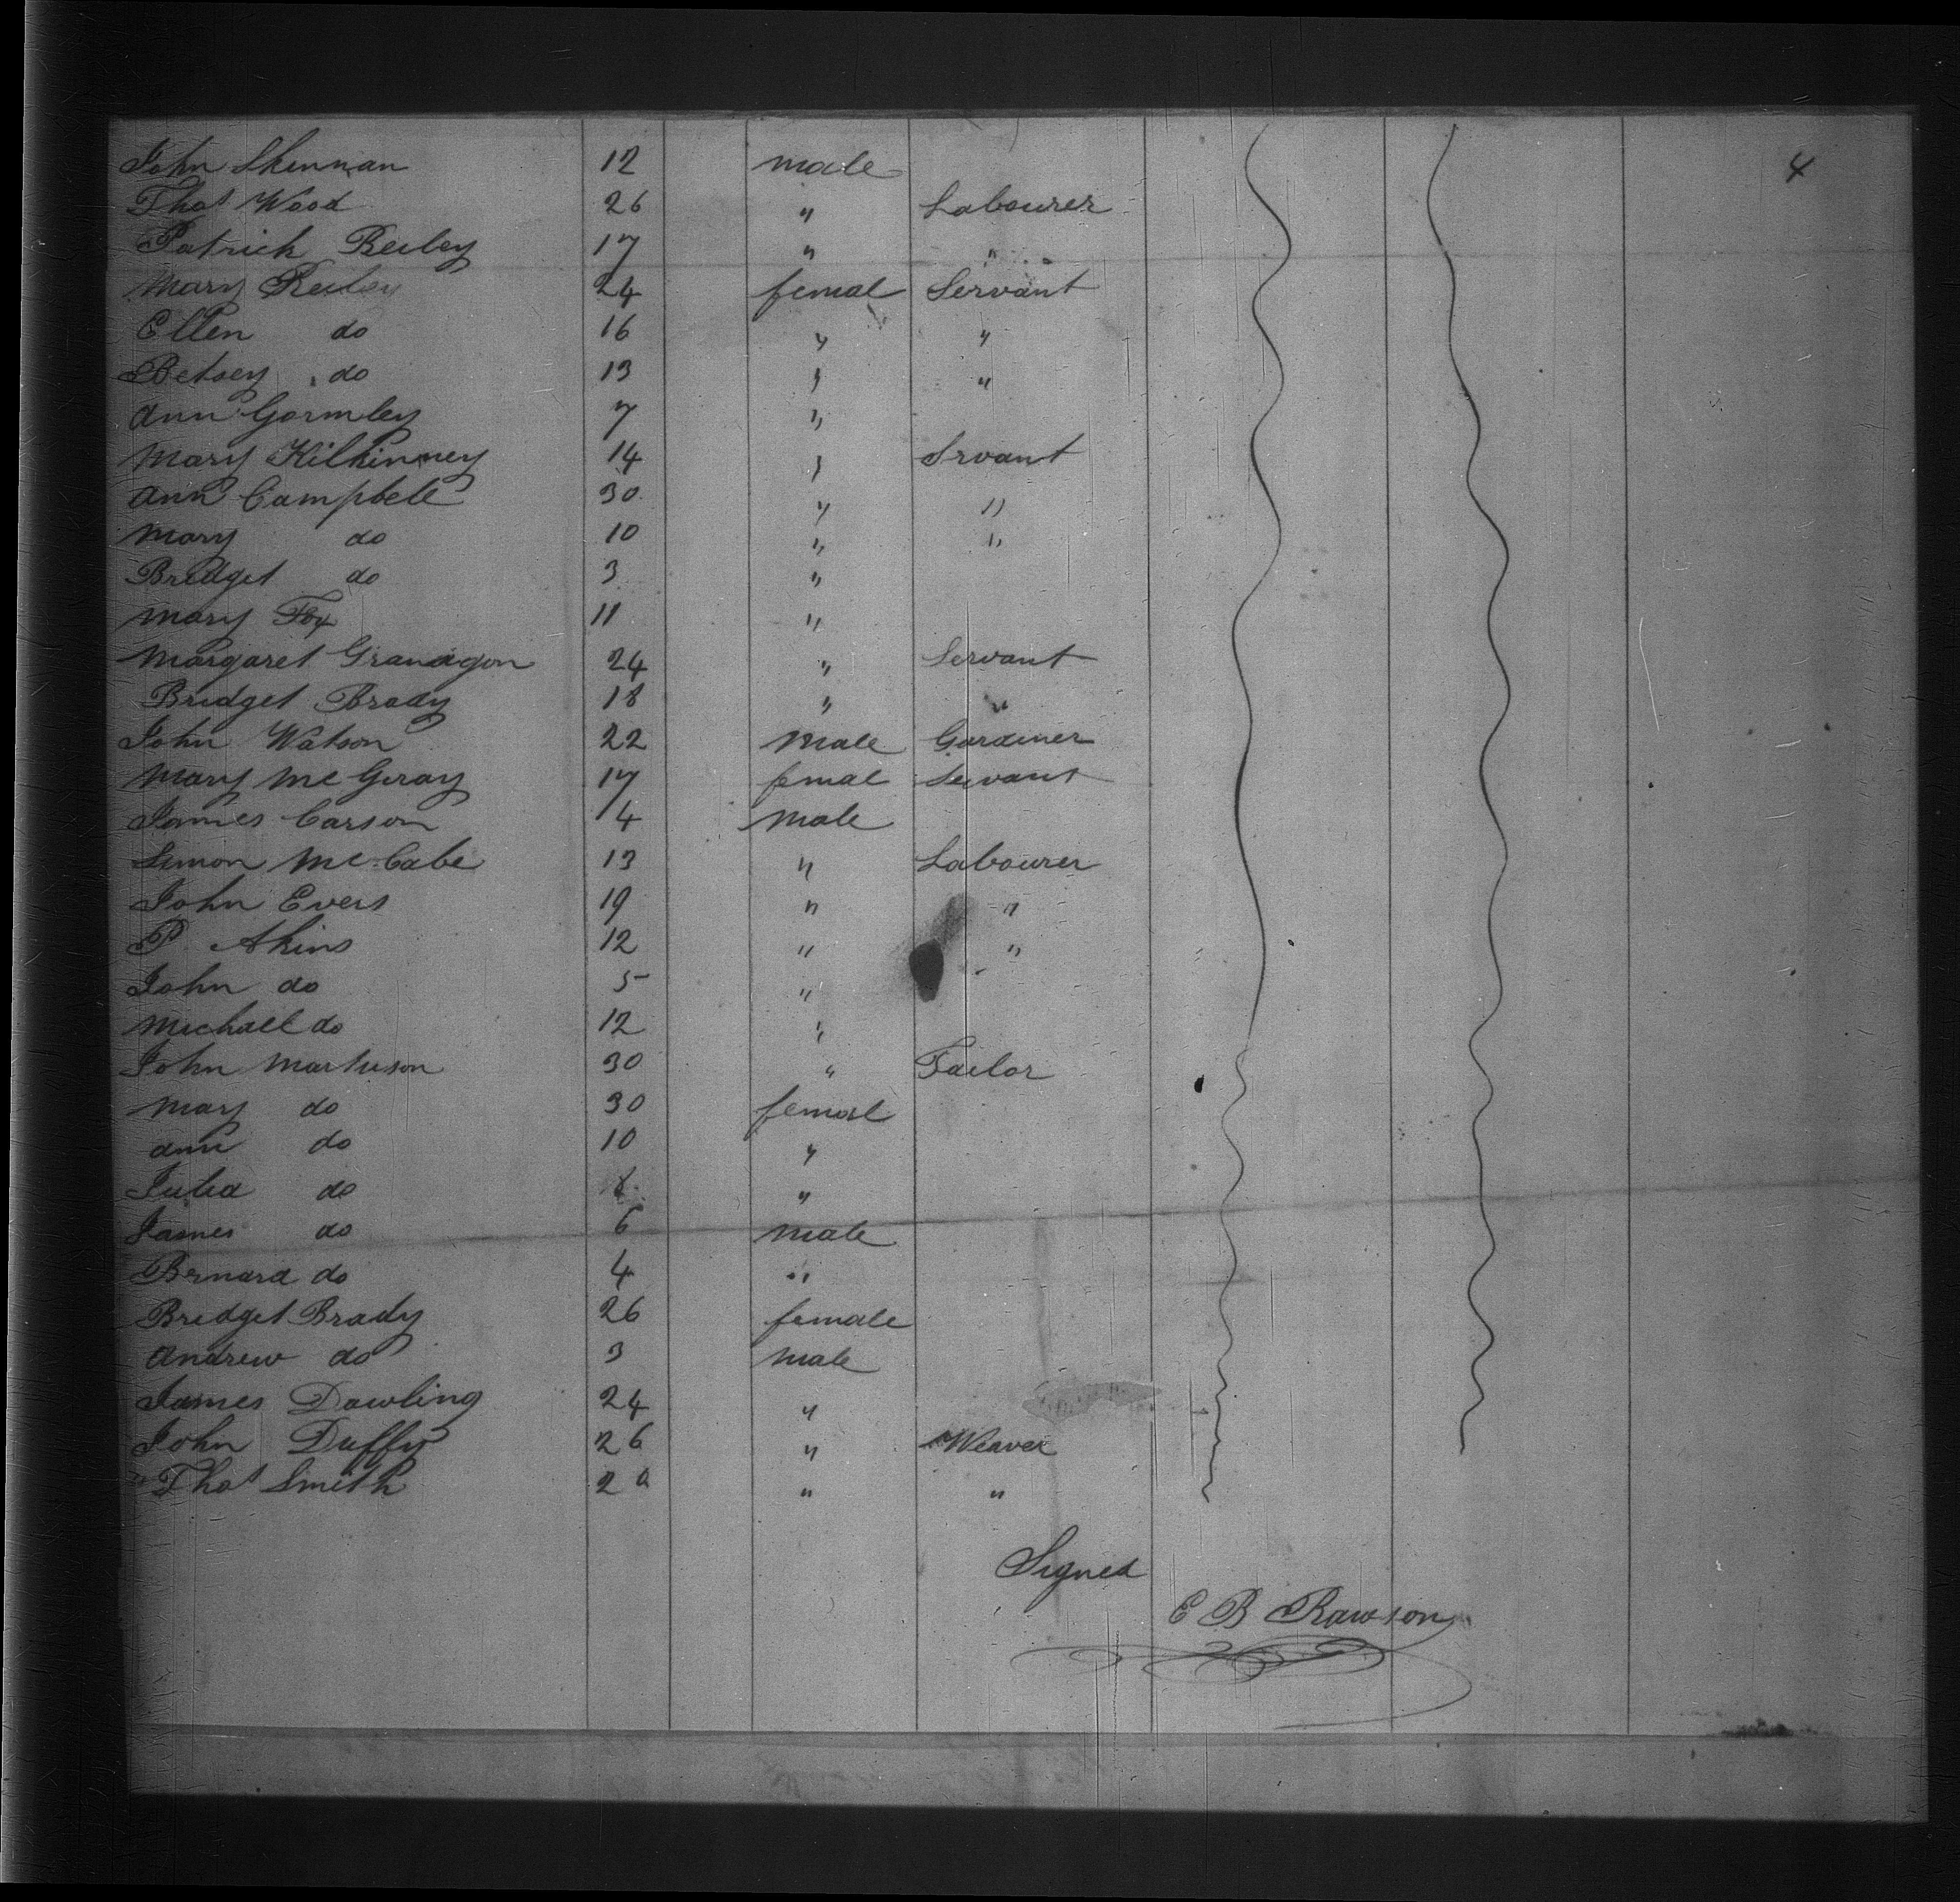 4
John Shennan 12 male
Thos Wood 26 " Labourer
Patrick Reiley 17 " "
Mary Reiley 24 femal Servant
Ellen do 16 " "
Betsey do 13 " "
Ann Gormley 7 "
Mary Kilkinney 14 " Srvant
Ann Campbell 30 " "
Mary do 10 " "
Bridget do 3 "
Mary Foy 11 "
Margaret 24 " Servant
Bridget Brady 18 " "
John Watson 22 Male Gardener
Mary McGiray 17 femal Servant
James Carson 14 Male
Simon McCabe 13 " Labourer
John Evers 19 " "
P. Akins 12 " "
John do 5 "
Michael do 12 "
John 30 " Tailor
Mary do 30 femal
Ann do 10 "
Julia do "
James do 6 Male
Bernard do 4 "
Bridget Brady 26 female
Andrew do 3 Male
James Dowling 24 "
John Duffy 26 " Weaver
Thos Smith 20 " "
Signed
E B Rawson